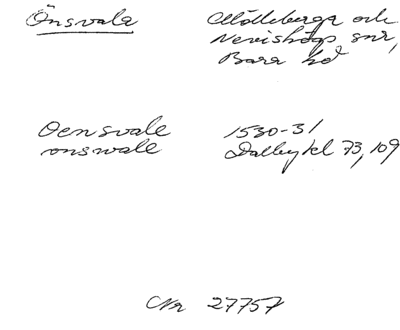 Önsvala Mölleberga och
Nevishögs snr,
Bara hd
Oensvale 1530-31
onswale Dalby kl 73, 109
Nr 27757